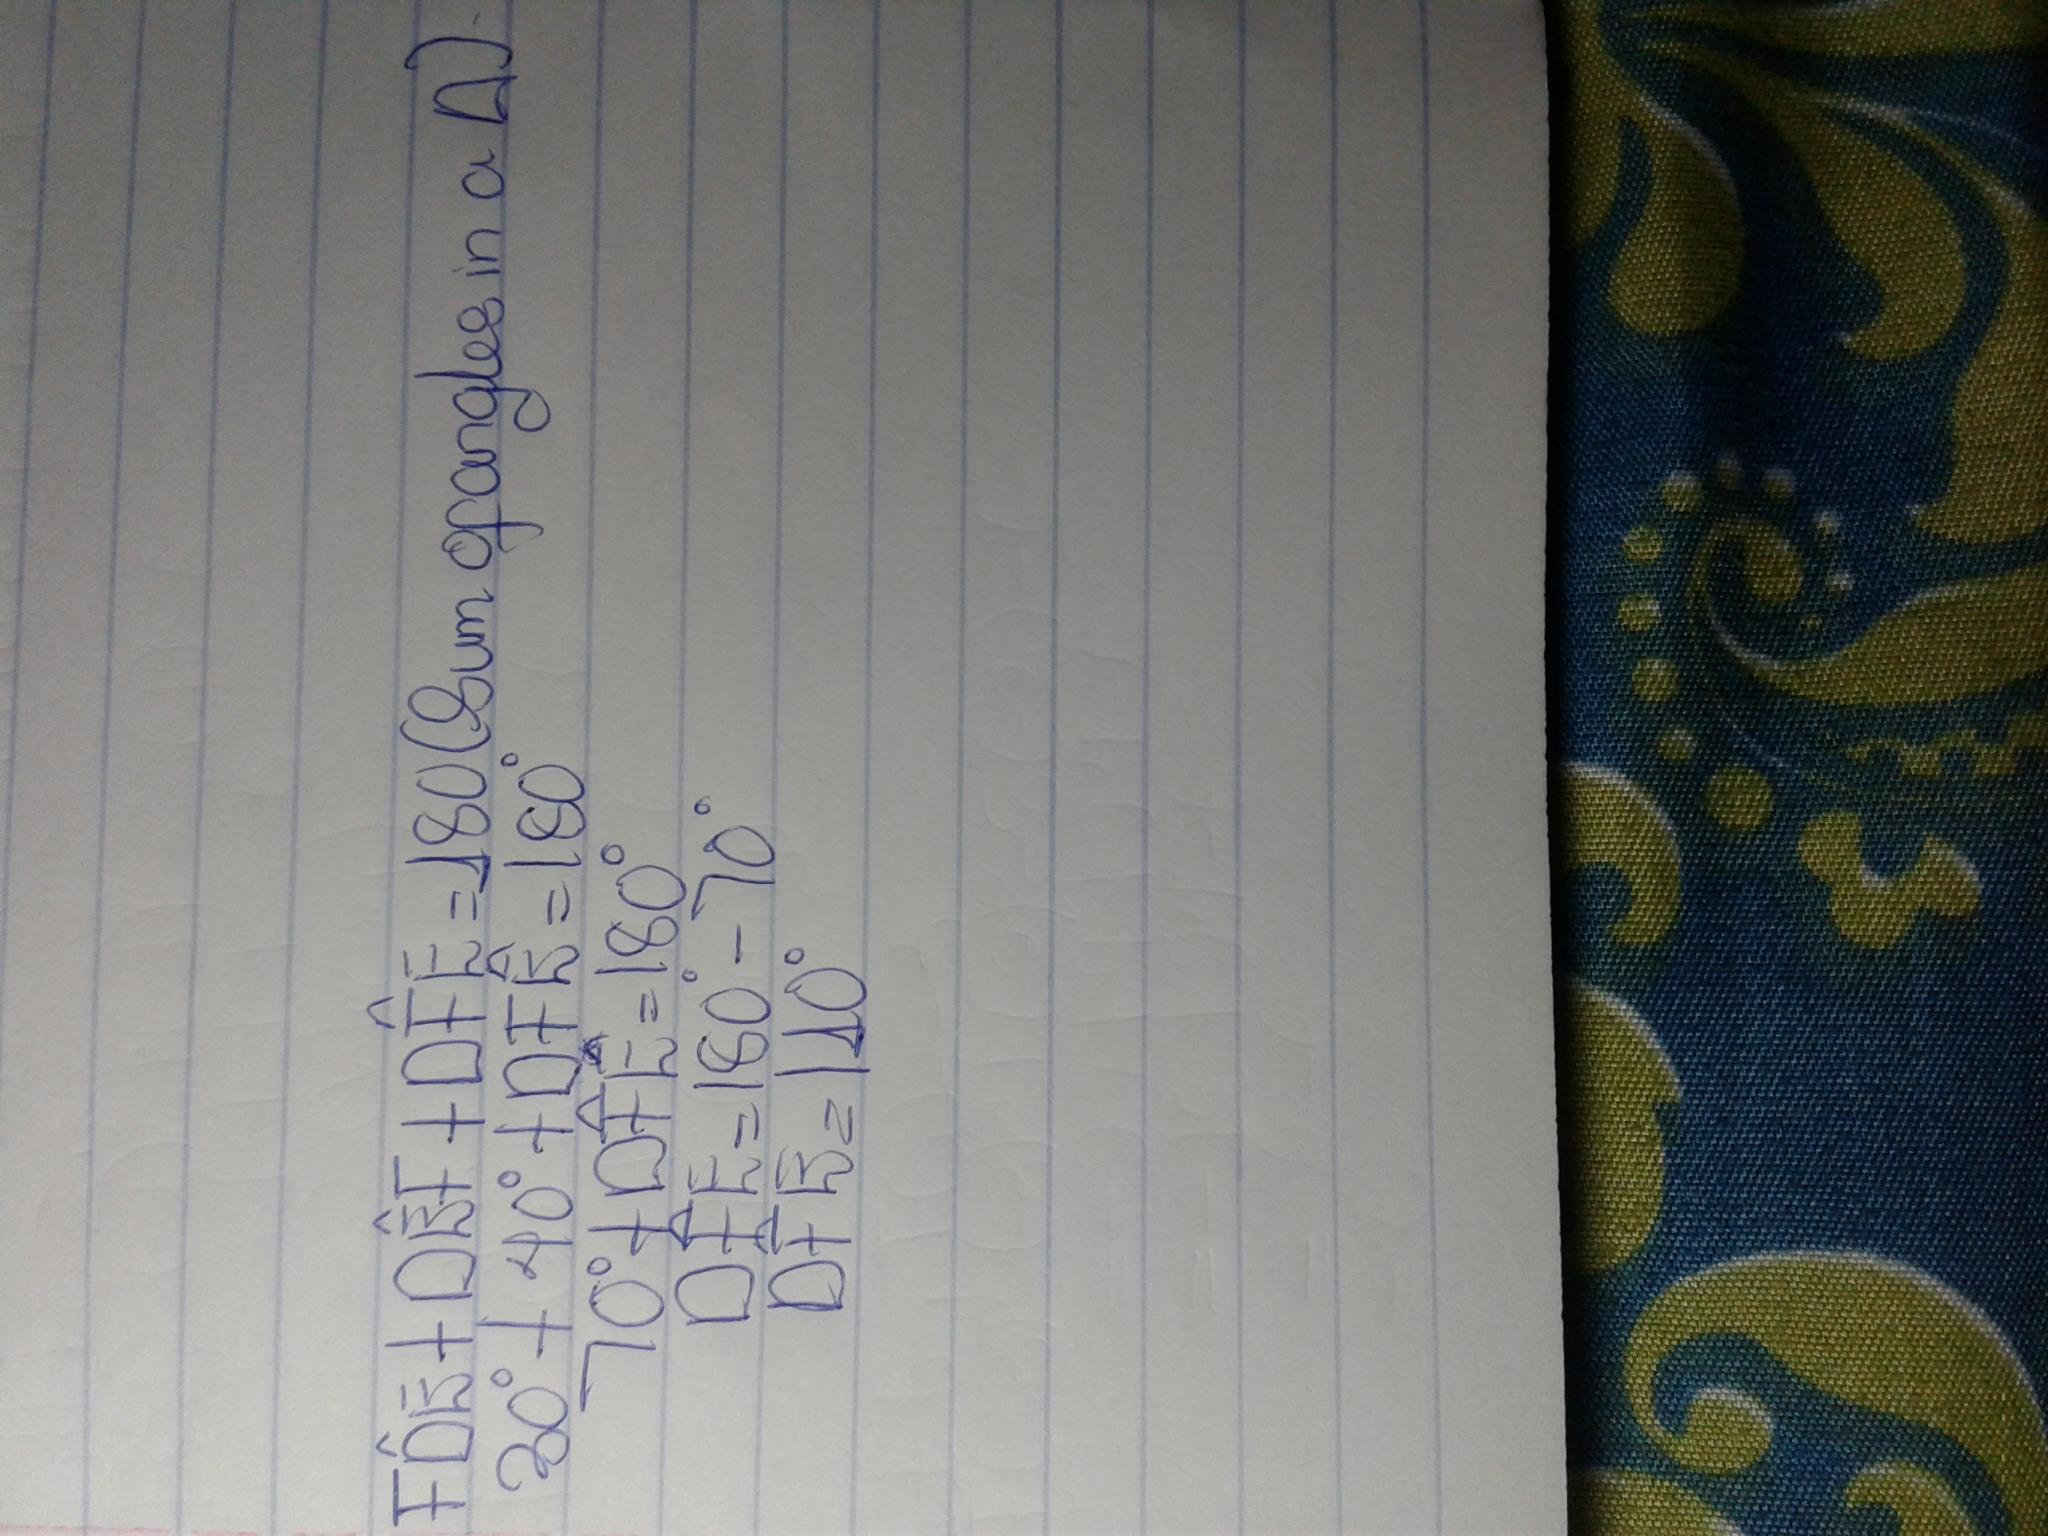 FD̂E + DÊF + DF̂E = 180 (Sum of angles in a Δ).
30° + 40° + DF̂E = 180°
70° + DF̂E = 180°
DF̂E = 180° - 70°
DF̂E = 110°